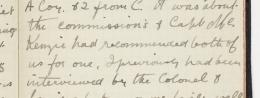 A Coy. & 2 from C. It was about
the commissions & Capt Mc
Kenzie had recommended both of
us for one, I previously had been
interviewed by the Colonel &